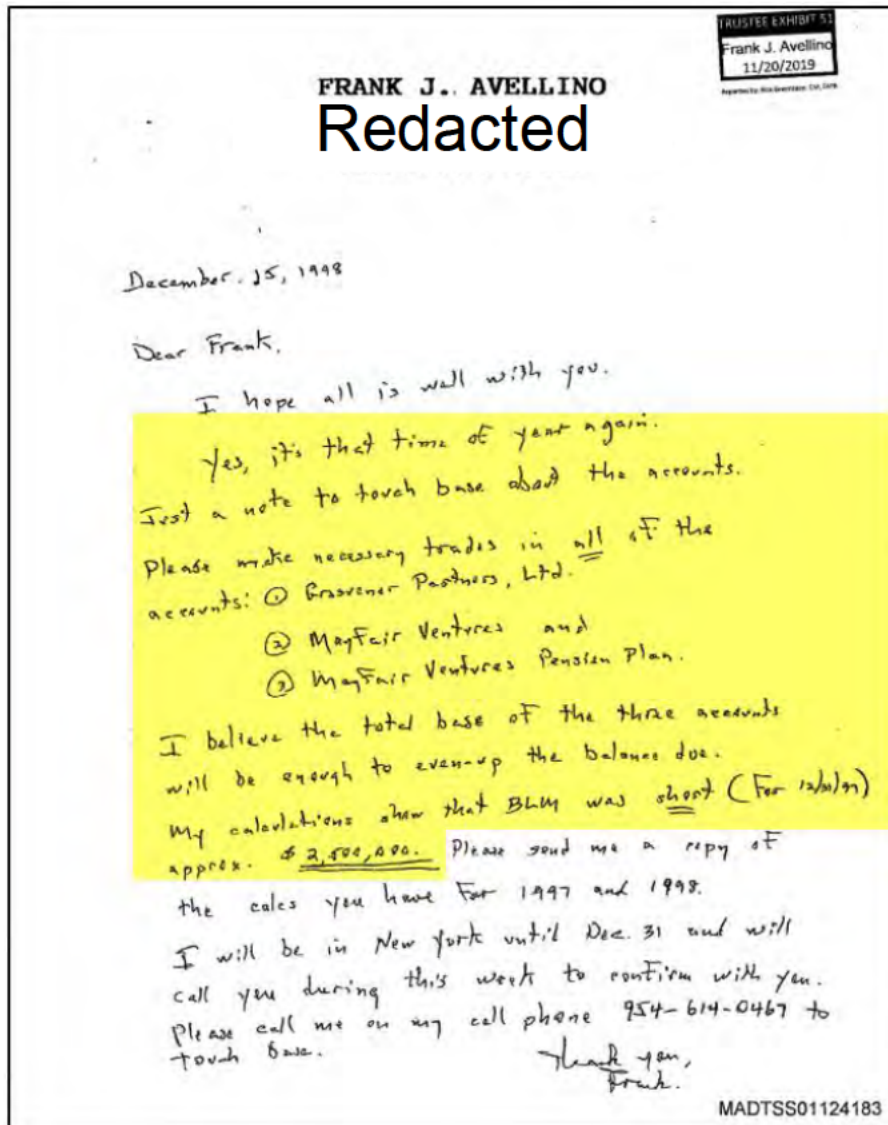 TRUSTEE EXHIBIT 51
Frank J. Avellino
11/20/2019
FRANK J. AVELLINO
Redacted
December 15, 1998
Dear Frank,
I hope all is well with you.
Yes, it's that time of year again.
Just a note to touch base about the accounts.
Please make necessary trades in all of the
accounts: ① Grosvenor Partners, Ltd.
② Mayfair Ventures and
③ Mayfair Ventures Pension Plan.
I believe the total base of the three accounts
will be enough to even-up the balance due.
My calculations show that BLM was short (For 12/31/97)
approx. $ 2,500,000. Please send me a copy of
the calcs you have for 1997 and 1998.
I will be in New York until Dec. 31 and will
call you during this week to confirm with you.
Please call me on my cell phone 954-614-0467 to
touch base.
Thank you,
Frank.
MADTSS01124183